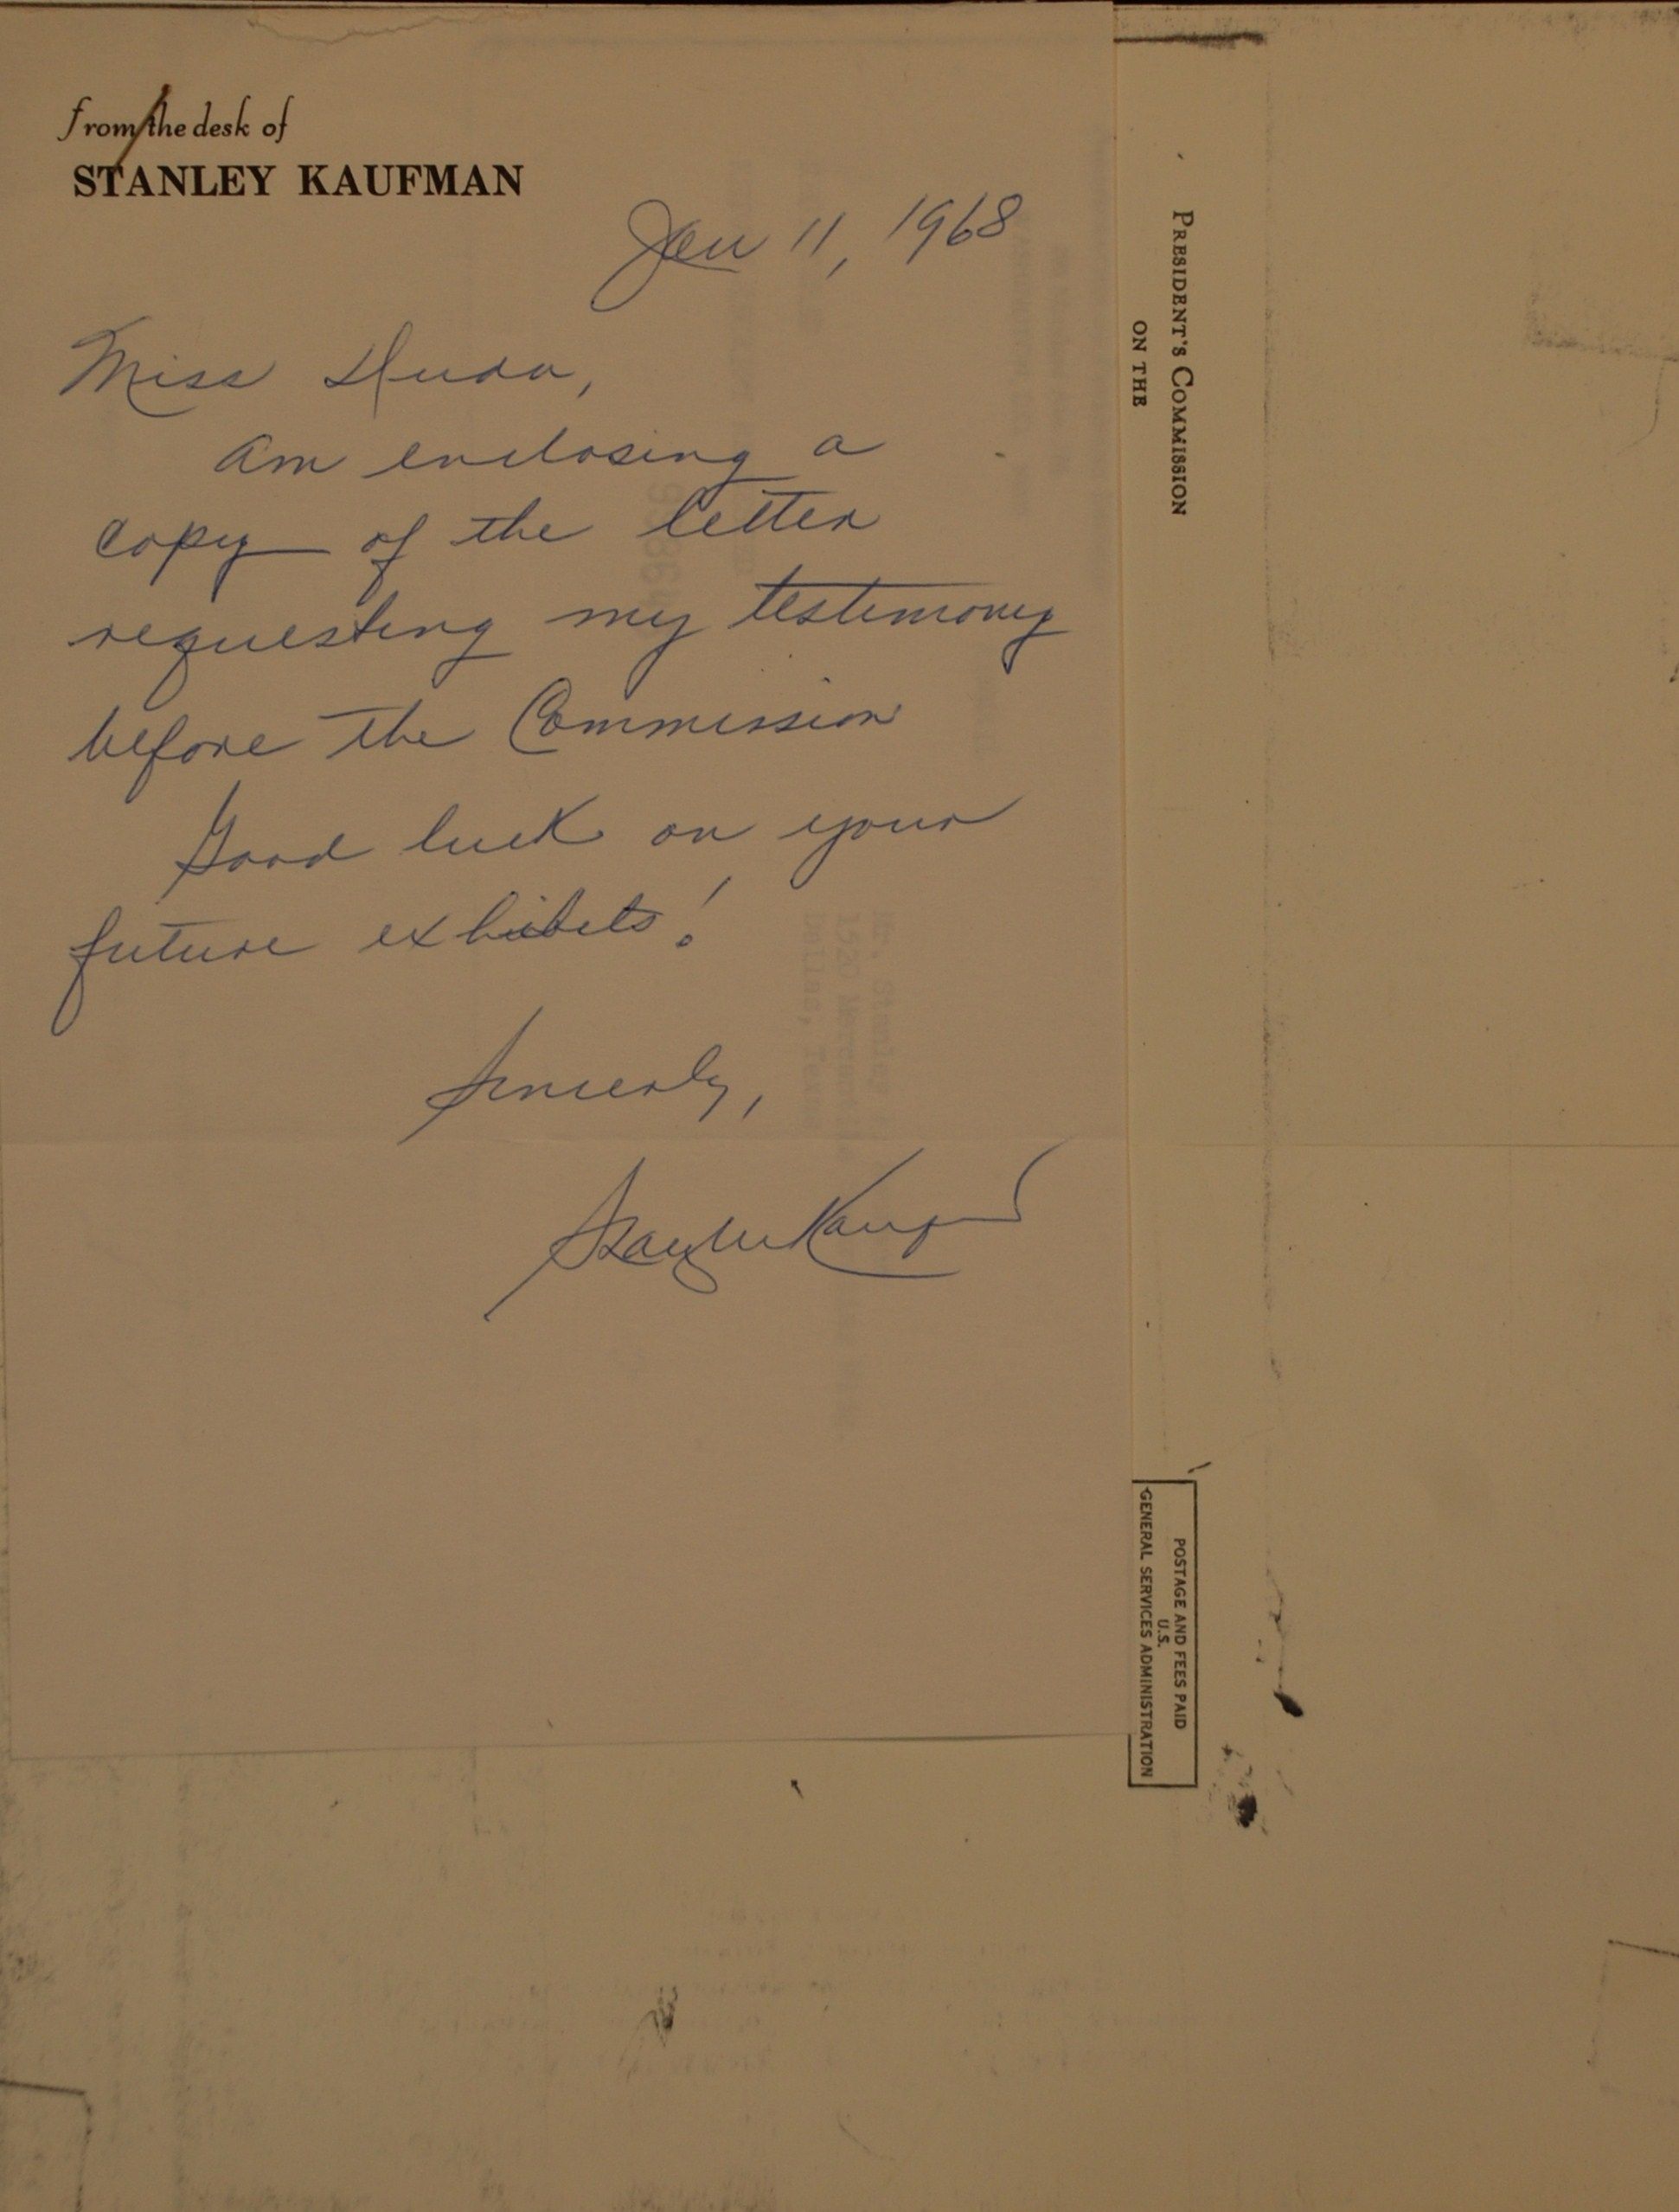 from the desk of
STANLEY KAUFMAN
Jan 11, 1968
Miss
am enclosing a
copy of the letter
requesting my testimony
before the Commission
Good luck on your
future exhibits!
Sincerely,
Stanley Kaufman
PRESIDENT'S COMMISSION
ON THE
POSTAGE AND FEES PAID
U.S.
GENERAL SERVICES ADMINISTRATION
Mr. Stanley
1520
Dallas, Texas